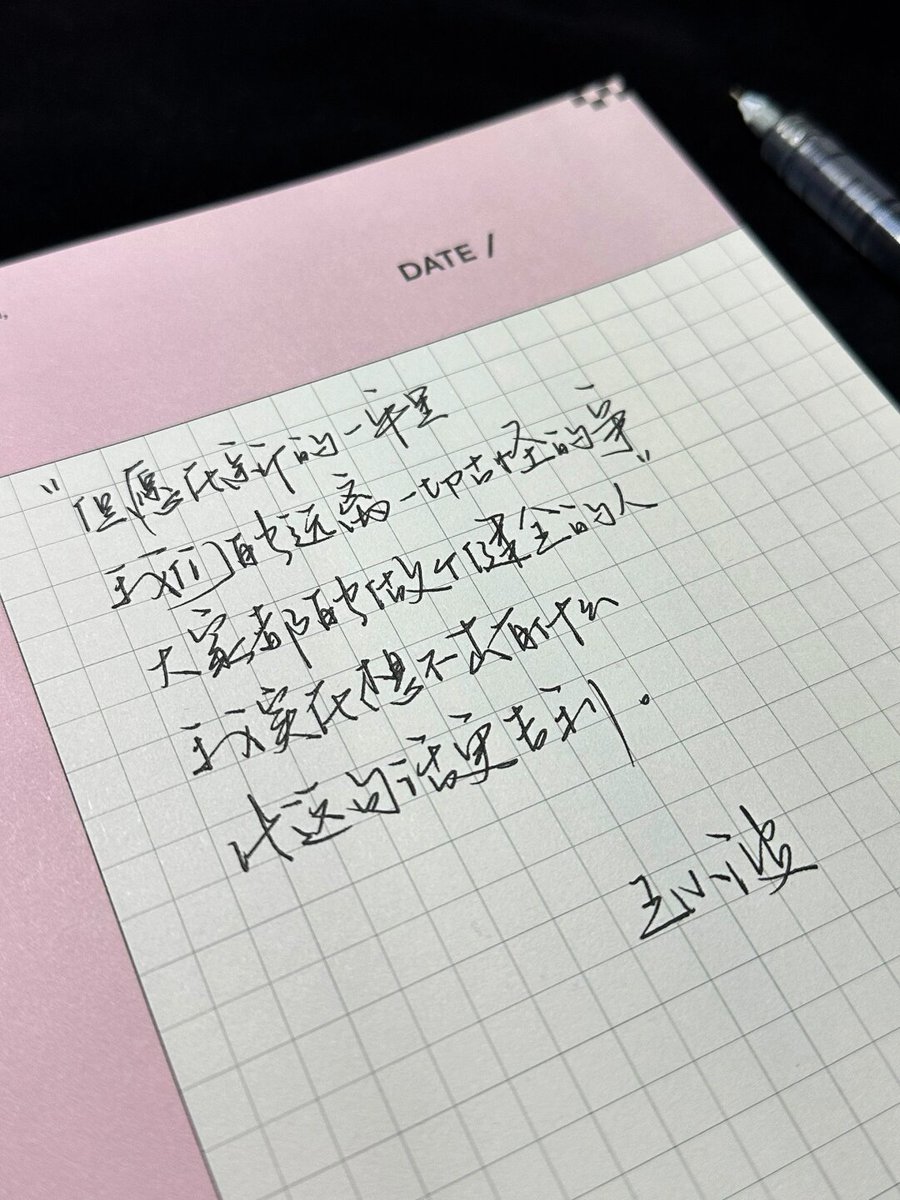 DATE /
"但愿在新的一年里
我们能远离一切古怪的事"
大家都能做个健全的人
我实在想不出有什么
比这句话更吉利.
王小波